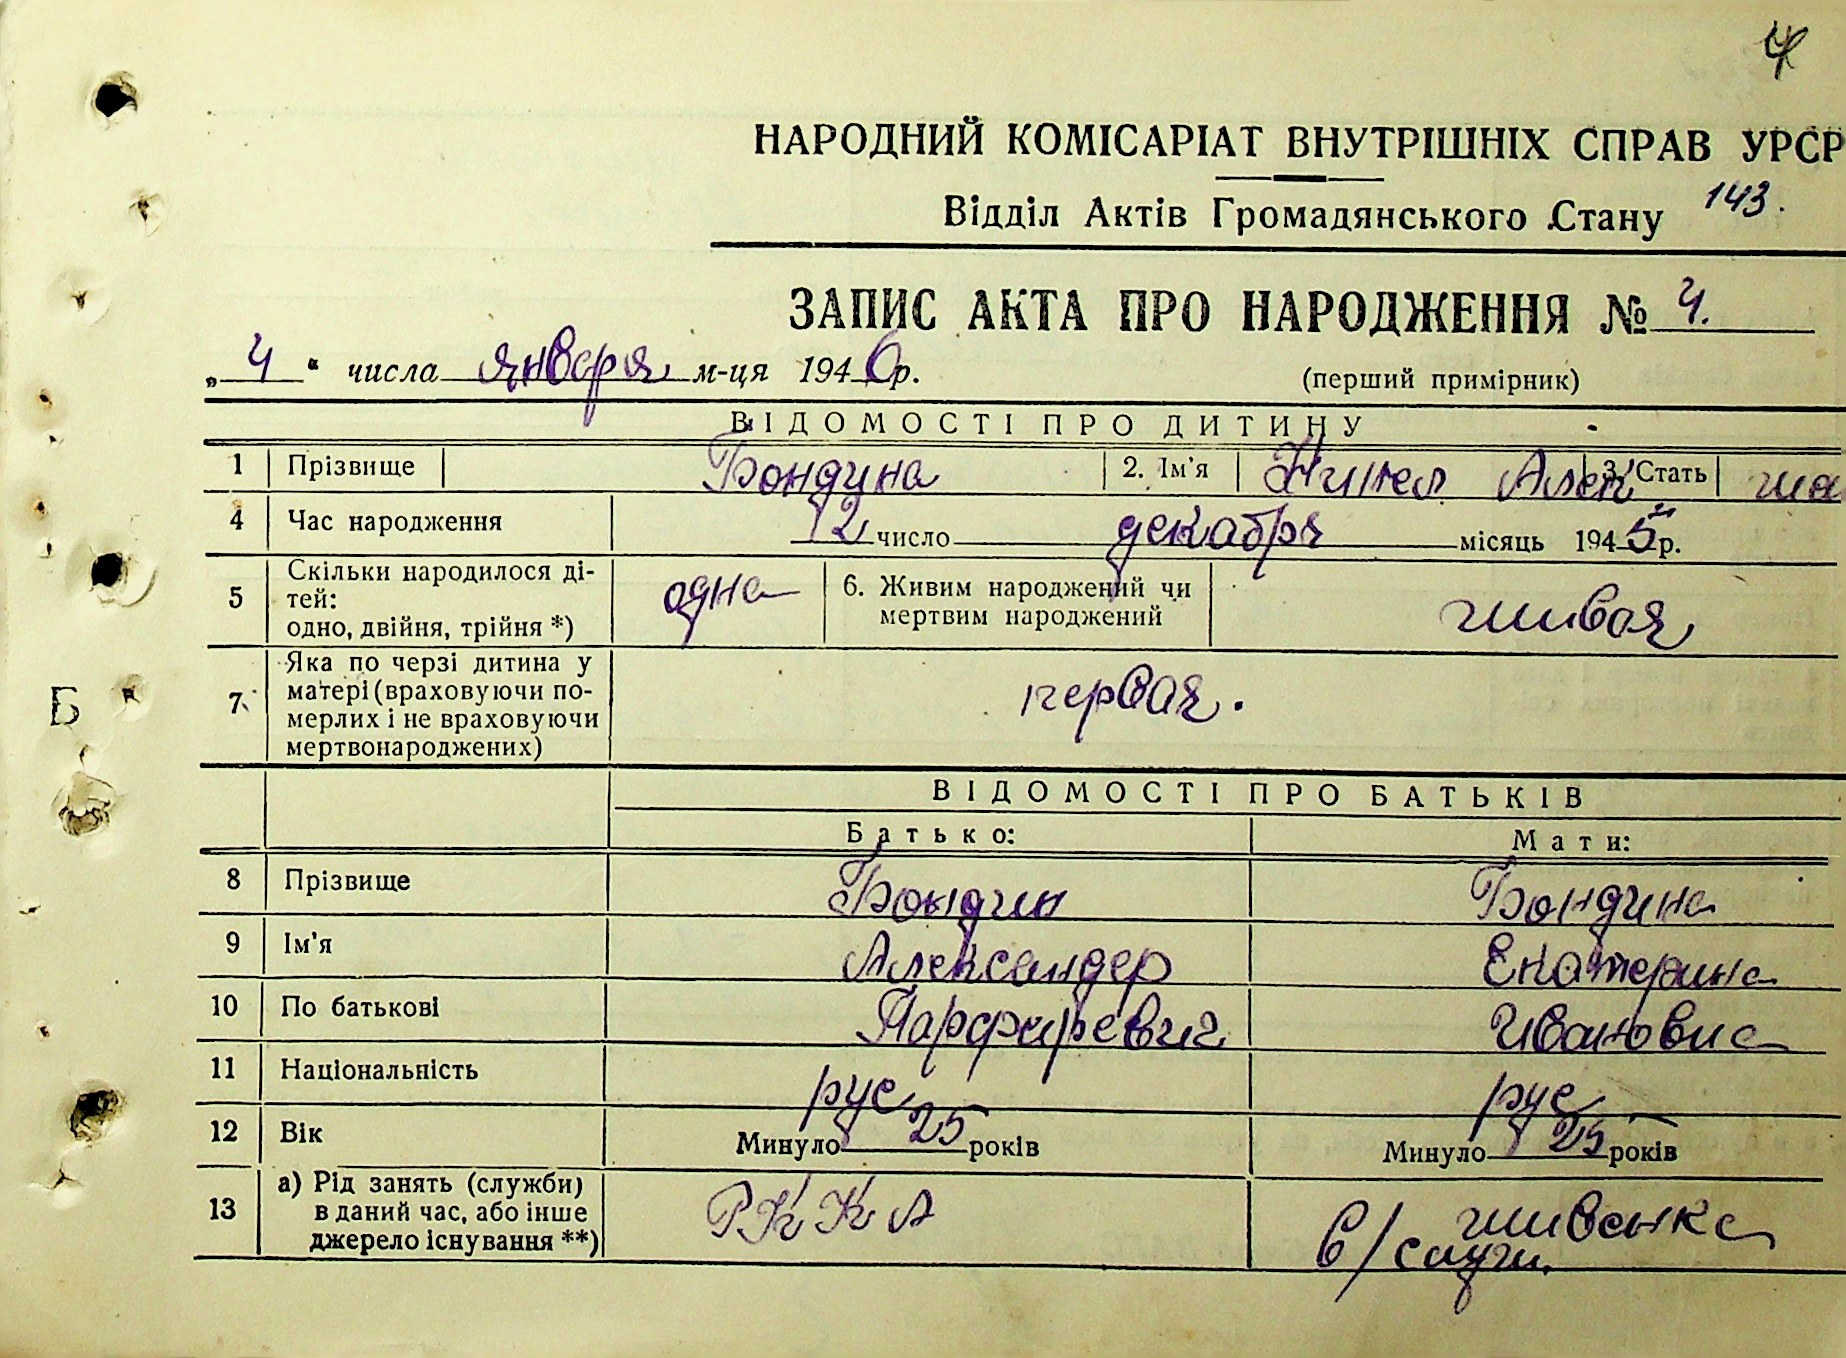 4
НАРОДНИЙ КОМІСАРІАТ ВНУТРІШНІХ СПРАВ УРСР
Відділ Актів Громадянського Стану 143.
ЗАПИС АКТА ПРО НАРОДЖЕННЯ № 4.
„ 4 “ числа января м-ця 1946 р.
(перший примірник)
ВІДОМОСТІ ПРО ДИТИНУ
1 Прізвище Бондина 2. Ім'я Нинел Алек 3. Стать
4 Час народження 12 число декабря місяць 1945 р.
5 Скільки народилося ді-
тей:
одно, двійня, трійня *) одна 6. Живим народжений чи
мертвим народжений живая
7. Яка по черзі дитина у
матері (враховуючи по-
мерлих і не враховуючи
мертвонароджених) первая.
Б
ВІДОМОСТІ ПРО БАТЬКІВ
Батько: Мати:
8 Прізвище Бондин Бондина
9 Ім'я Александер Екатерина
10 По батькові Парфиревич Ивановна
11 Національність рус рус
12 Вік Минуло 25 років Минуло 25 років
13 а) Рід занять (служби)
в даний час, або інше
джерело існування **) РККА
в/служ.